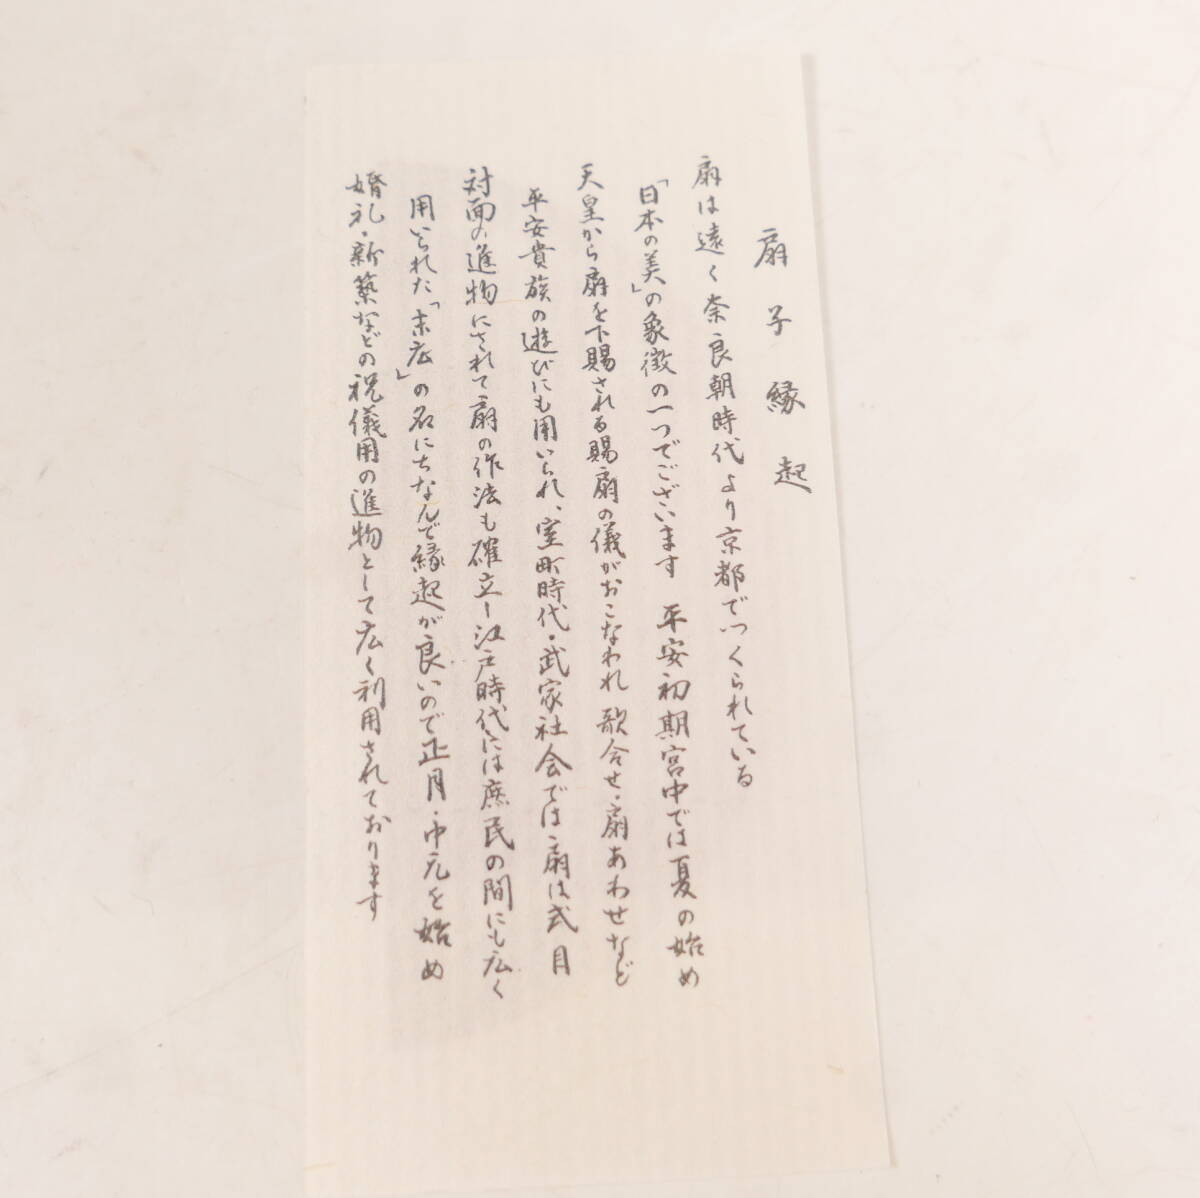 扇子縁起
扇は遠く奈良朝時代より京都でつくられている
「日本の美」の象徴の一つでございます　平安初期宮中では夏の始め
天皇から扇を下賜される賜扇の儀がおこなわれ　歌合せ・扇あわせなど
平安貴族の遊びにも用いられ、室町時代・武家社会では扇は式目
対面の進物にされて扇の作法も確立し江戸時代には庶民の間にも広く
用いられた「末広」の名にちなんで縁起が良いので正月・中元を始め
婚礼・新築などの祝儀用の進物として広く利用されております